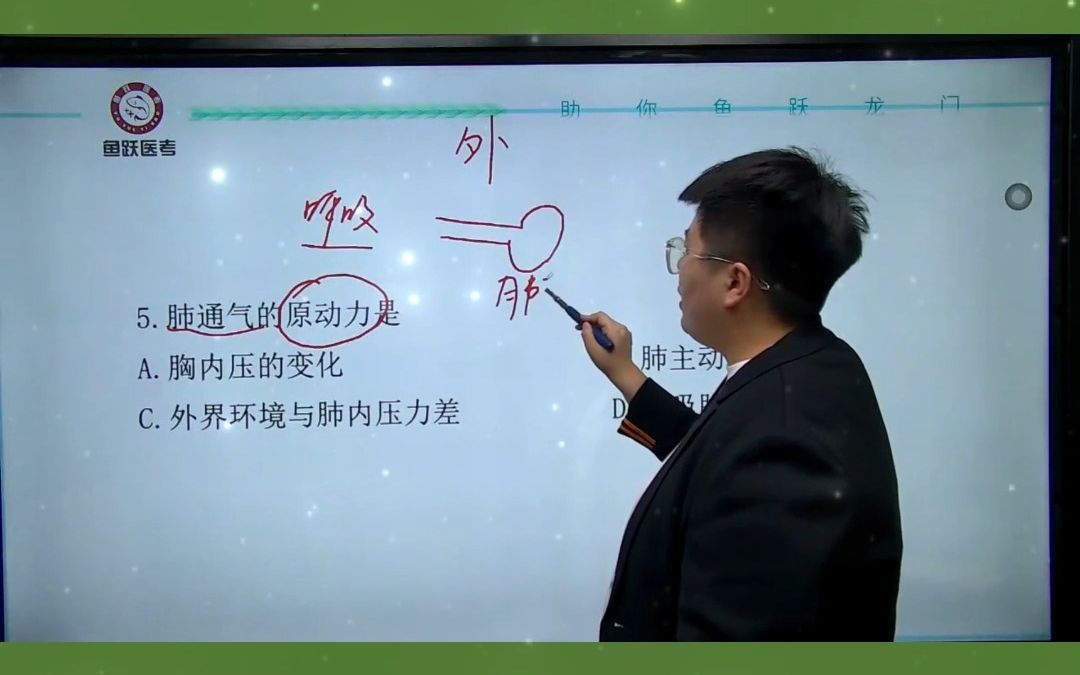 助你鱼跃龙门
鱼跃医考
外
呼吸
肺
5. 肺通气的原动力是
A. 胸内压的变化
肺主动
C. 外界环境与肺内压力差
D